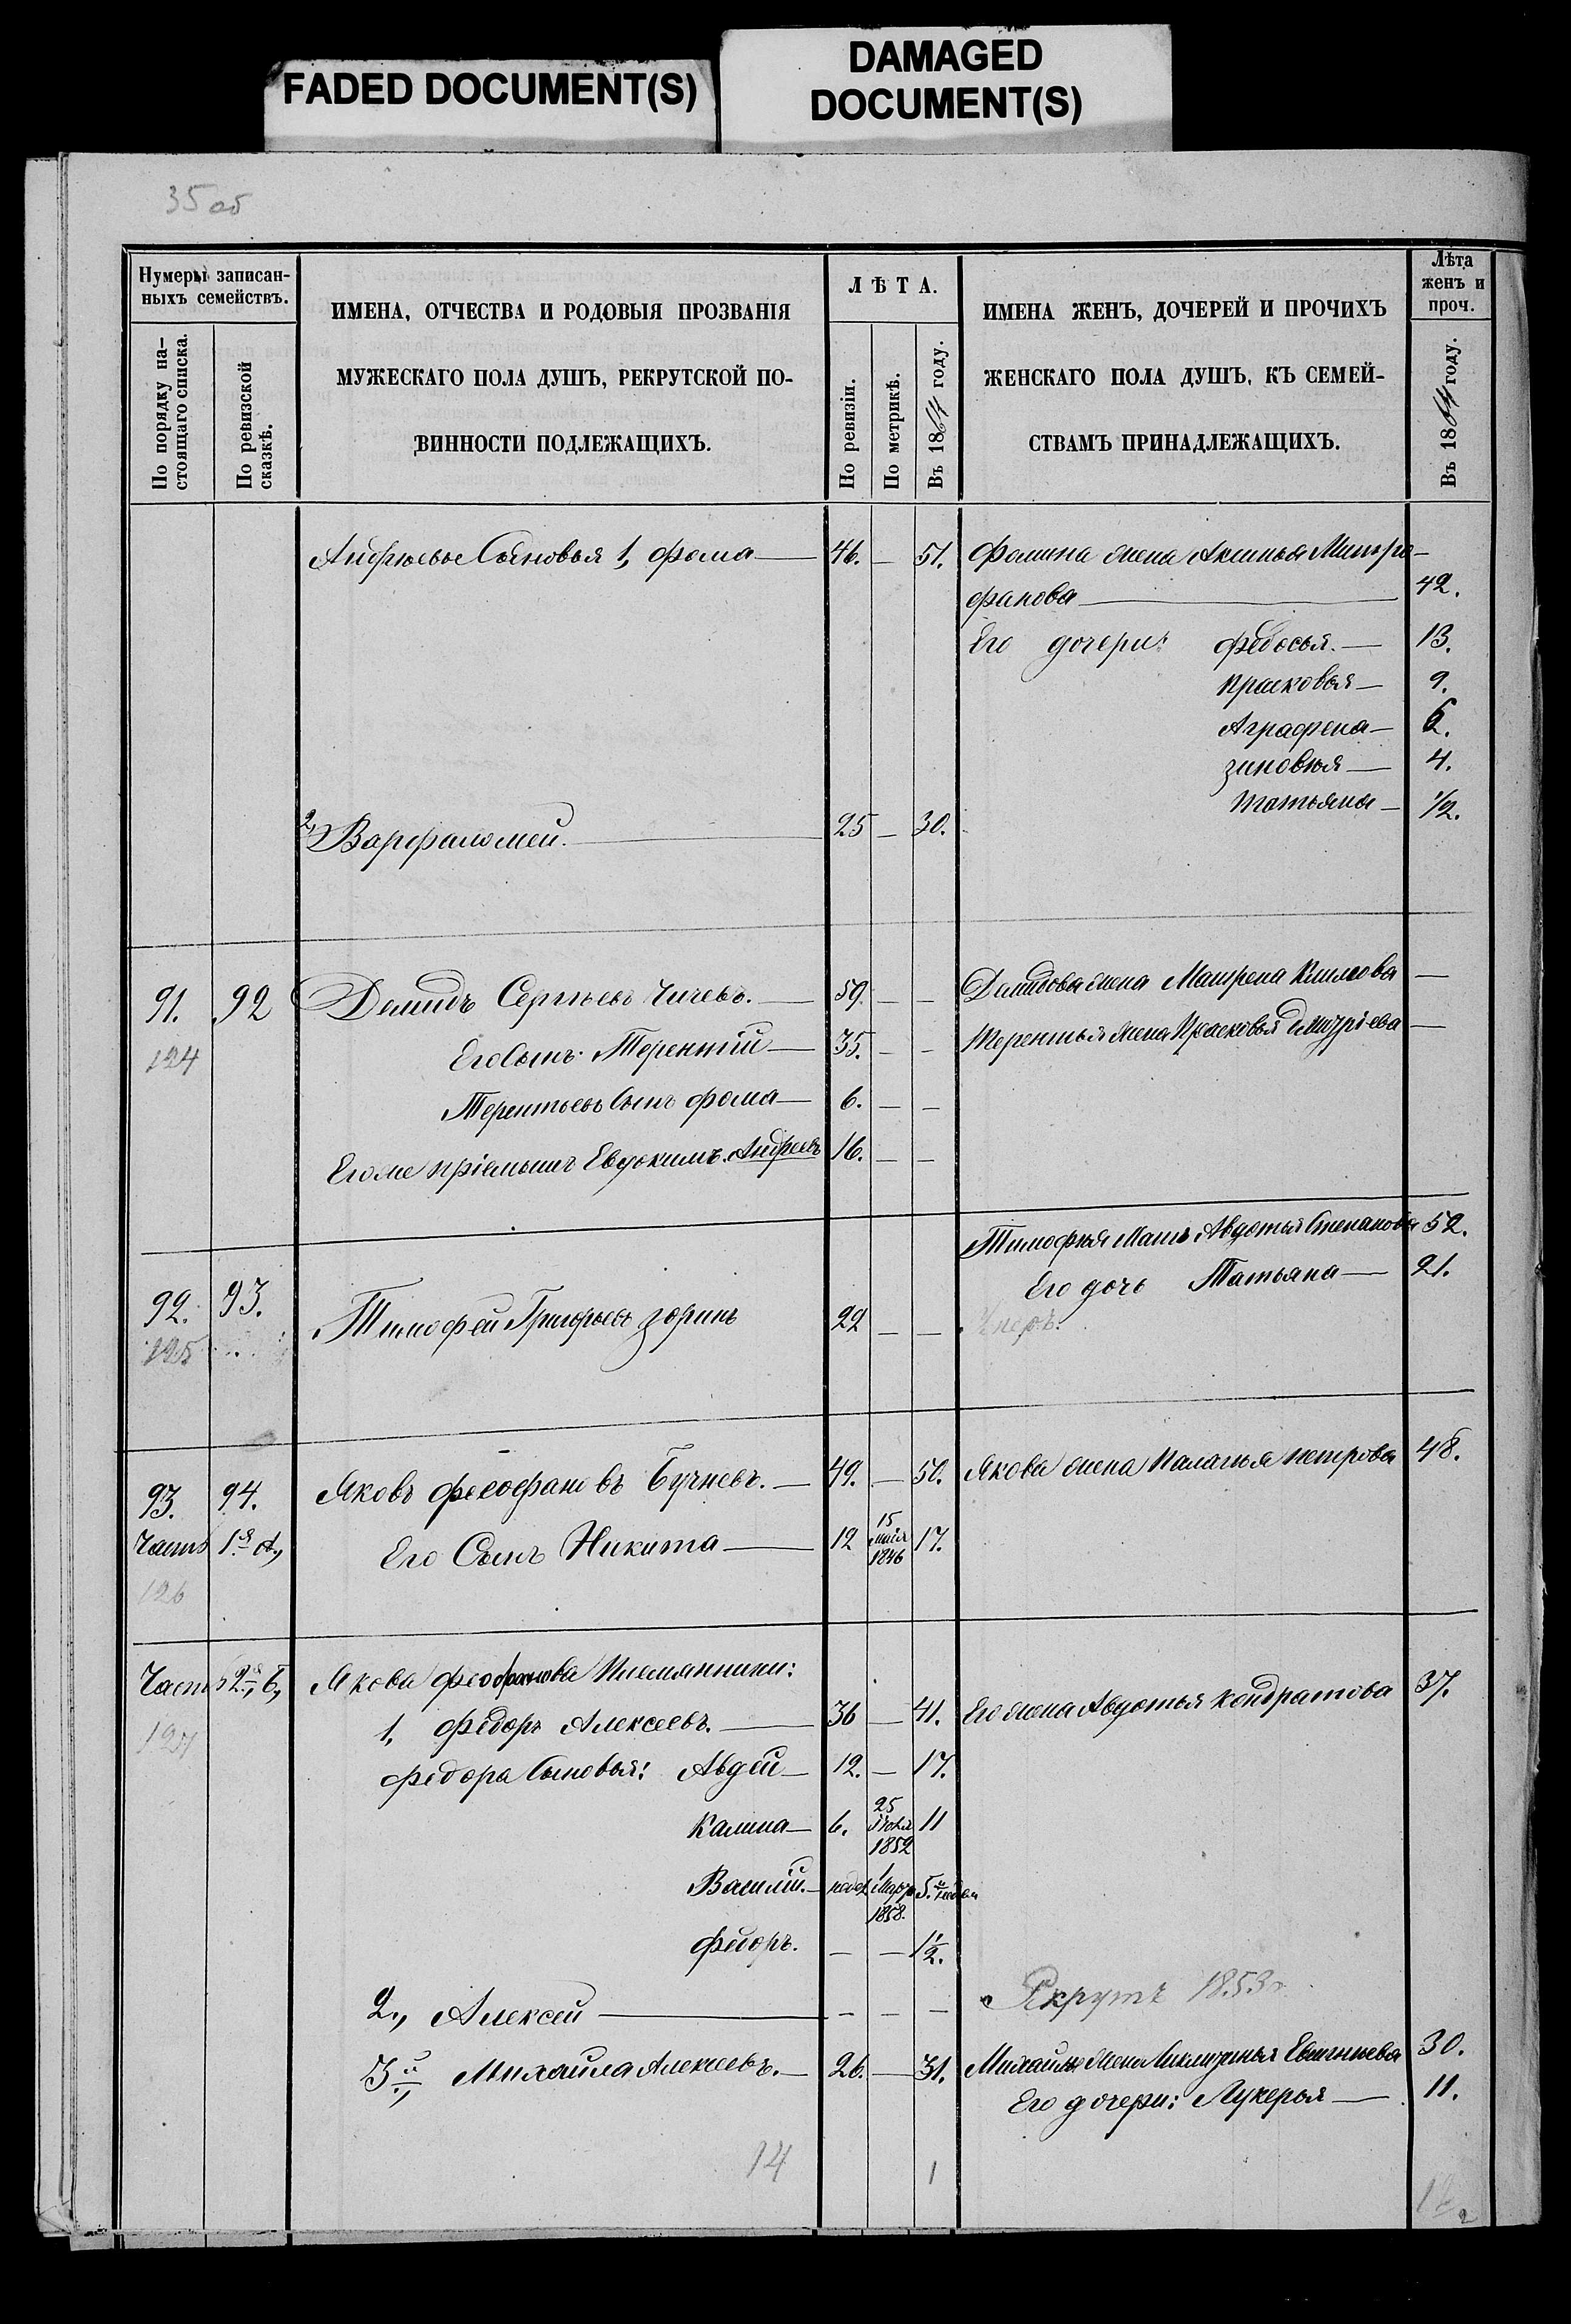 FADED DOCUMENT(S)
DAMAGED
DOCUMENT(S)
35 об
Нумеры записан-
ныхъ семействъ.
По порядку на-
стоящаго списка.
По ревизской
сказкѣ.
ИМЕНА, ОТЧЕСТВА И РОДОВЫЯ ПРОЗВАНІЯ
МУЖЕСКАГО ПОЛА ДУШЪ, РЕКРУТСКОЙ ПО-
ВИННОСТИ ПОДЛЕЖАЩИХЪ.
ЛѢТА.
По ревизіи.
По метрикѣ.
Въ 1864 году.
ИМЕНА ЖЕНЪ, ДОЧЕРЕЙ И ПРОЧИХЪ
ЖЕНСКАГО ПОЛА ДУШЪ, КЪ СЕМЕЙ-
СТВАМЪ ПРИНАДЛЕЖАЩИХЪ.
Лѣта
женъ и
проч.
Въ 1864 году.
Андрѣевы Сыновья 1, фома — 46. — 51. Фомина жена Аксинья Митро-
фанова — 42.
Его дочери: федосья. — 13.
Прасковья — 9.
Аграфена — 6.
зиновья — 4.
Татьяна — 1/2.
2, Варфаломей. — 25 — 30.
91. 92 Демидъ Сергѣевъ Чичевъ. — 59. — — Демидова жена Матрена Климова —
124 Его Сынъ Терентій — 35. — — Терентья жена Прасковья дмитріева —
Терентьевъ Сынъ фома — 6. — —
Егоже пріемышъ Евдокимъ Андреевъ 16. — —
Тимофѣя Мать Авдотья Степанова 52.
Его дочь Татьяна — 21.
92. 93. Тимофей Григорьевъ зоринъ 22 — —
125
93. 94. Яковъ феофановъ Бучневъ. — 49. — 50. Якова жена Палагья петрова 48.
Часть 1я А., Его Сынъ Никита — 12 15 маія 1846 17.
126
Часть 2я, Б, Якова феофанова Племянники:
127 1, федоръ Алексеевъ. — 36 — 41. Его жена Авдотья кондратова 37.
федора Сыновья: Авдей — 12. — 17.
Калина — 6. 25 Іюля 1852 11
Василій. — недел 1 Марта 1858. 5.
Федоръ. — — 1 1/2.
2., Алексей — — — — Рекрутъ 1853 г.
3й., Михайла Алексеевъ. — 26. — 31. Михайлы жена Евигньева 30.
Его дочери: Лукерья — 11.
14 1